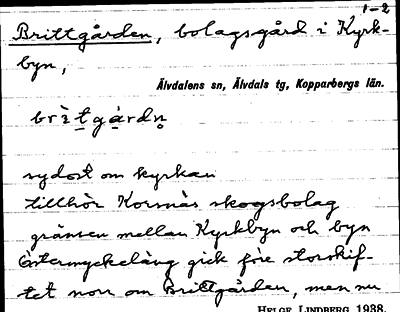 1-2
Brittgården, bolagsgård i Kyrk-
byn,
Älvdalens sn, Älvdals tg, Kopparbergs län.
brìtgàrdn̥
sydost om kyrkan
tillhör Korsnäs skogsbolag
gränsen mellan Kyrkbyn och byn
Östermyckeläng gick före storskif-
tet norr om Brittgården, men nu
HELGE LINDBERG 1938.